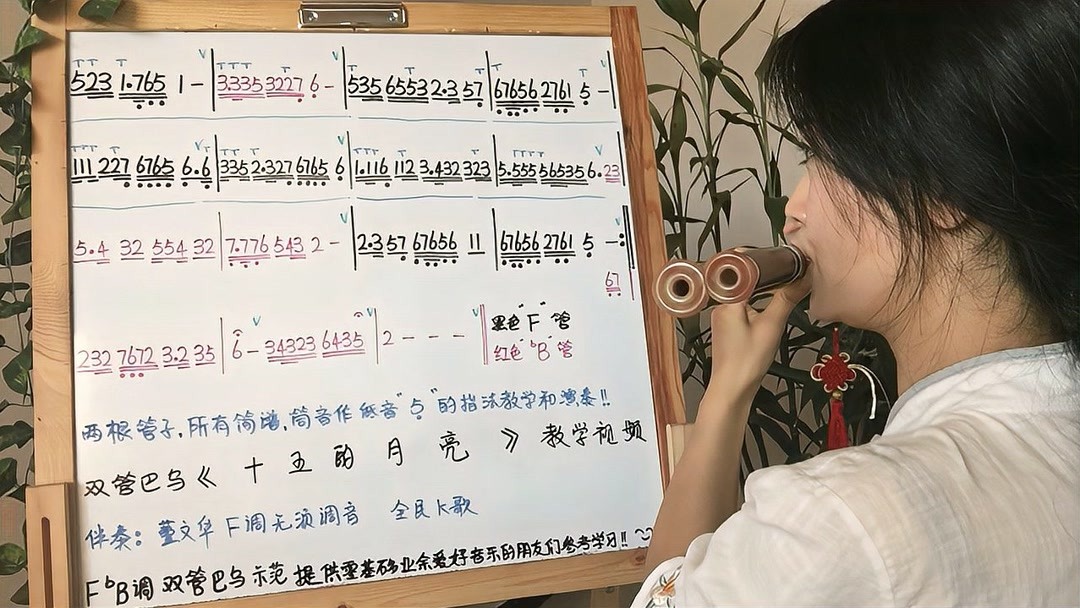 523 1.765 1 - | 3.335 3227 6 - | 535 6553 2.3 57 | 67656 2761 5 - |
111 227 6765 6.6 | 335 2.327 6765 6 | 1.116 112 3.432 323 | 5.555 56535 6.23
5.4 32 554 32 | 7.776 543 2 - | 2.3 57 67656 11 | 67656 2761 5 - :|
67
232 7672 3.2 35 | 6 - 34323 6435 | 2 - - - ||
黑色"F"管
红色"bB"管
两根管子,所有简谱,筒音作低音"5"的指法教学和演奏!!
双管巴乌《十五的月亮》教学视频
伴奏:董文华 F调无须调音 全民K歌
F bB调 双管巴乌 示范 提供零基础业余爱好音乐的朋友们参考学习!!